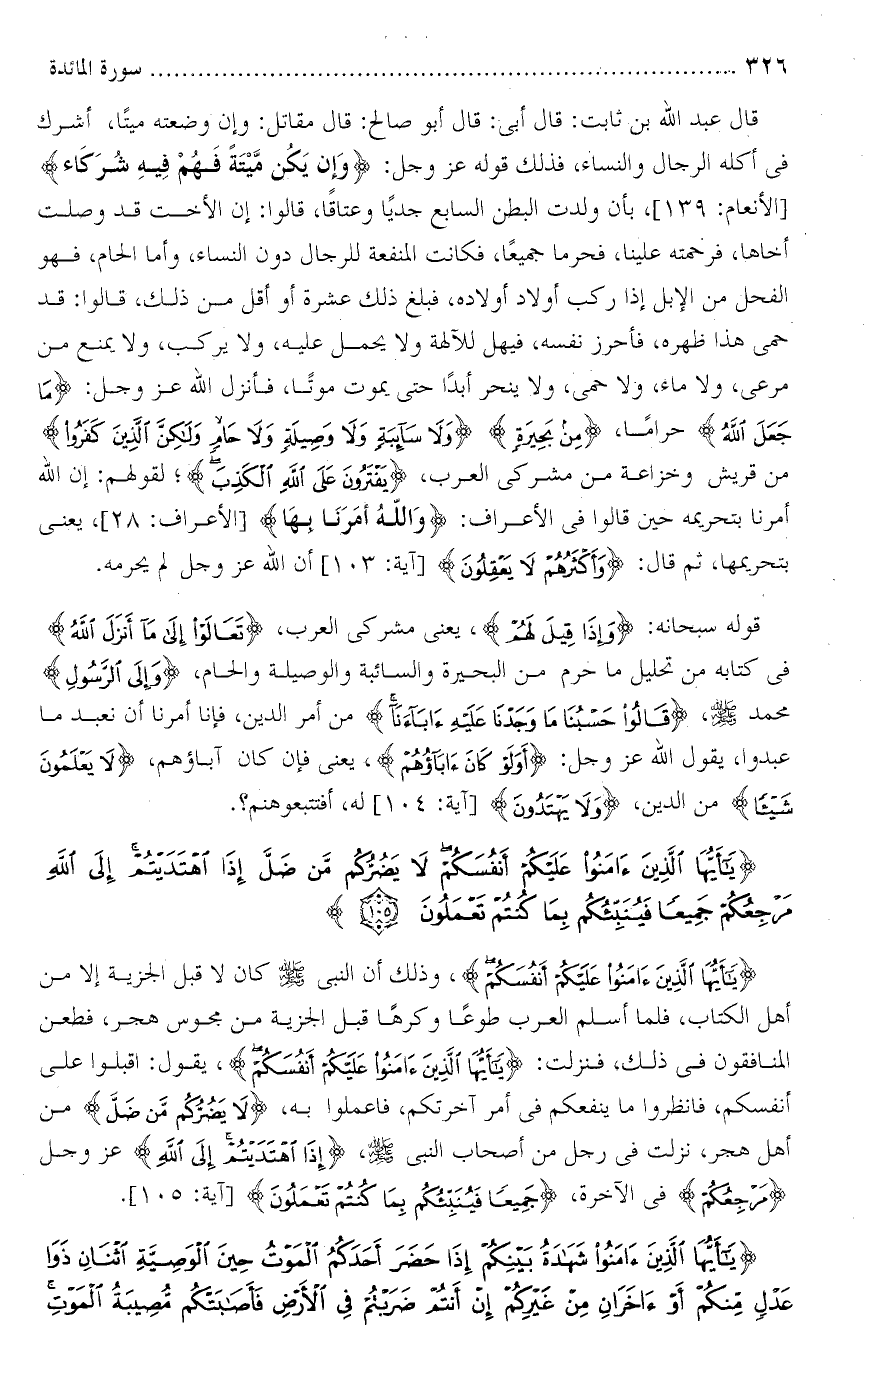 ٣٢٦ ........................................................................ سورة المائدة
قال عبد الله بن ثابت: قال أبى: قال أبو صالح: قال مقاتل: وإن وضعته ميتًا، أشرك
فى أكله الرجال والنساء، فذلك قوله عز وجل: ﴿وَإِن يَكُن مَّيْتَةً فَهُمْ فِيهِ شُرَكَاء﴾
[الأنعام: ١٣٩]، بأن ولدت البطن السابع جديًا وعناقًا، قالوا: إن الأخت قد وصلت
أخاها، فرحمته علينا، فحرما جميعًا، فكانت المنفعة للرجال دون النساء، وأما الحام، فهو
الفحل من الإبل إذا ركب أولاد أولاده، فبلغ ذلك عشرة أو أقل من ذلك، قالوا: قد
حمى هذا ظهره، فأحرز نفسه، فيهل للآلهة ولا يحمل عليه، ولا يركب، ولا يمنع من
مرعى، ولا ماء، ولا حمى، ولا ينحر أبدًا حتى يموت موتًا، فأنزل الله عز وجل: ﴿مَا
جَعَلَ اللَّهُ﴾ حرامًا، ﴿مِنْ بَحِيرَةٍ﴾ ﴿وَلَا سَآئِبَةٍ وَلَا وَصِيلَةٍ وَلَا حَامٍ وَلَكِنَّ الَّذِينَ كَفَرُوا﴾
من قريش وخزاعة من مشركى العرب، ﴿يَفْتَرُونَ عَلَى اللَّهِ الْكَذِبَ﴾؛ لقولهم: إن الله
أمرنا بتحريمه حين قالوا فى الأعراف: ﴿وَاللّهُ أَمَرَنَا بِهَا﴾ [الأعراف: ٢٨]، يعنى
بتحريمها، ثم قال: ﴿وَأَكْثَرُهُمْ لَا يَعْقِلُونَ﴾ [آية: ١٠٣] أن الله عز وجل لم يحرمه.
قوله سبحانه: ﴿وَإِذَا قِيلَ لَهُمْ﴾، يعنى مشركى العرب، ﴿تَعَالَوْا إِلَى مَا أَنزَلَ اللَّهُ﴾
فى كتابه من تحليل ما حرم من البحيرة والسائبة والوصيلة والحام، ﴿وَإِلَى الرَّسُولِ﴾
محمد ﷺ، ﴿قَالُوا حَسْبُنَا مَا وَجَدْنَا عَلَيْهِ ءَابَاءَنَا﴾ من أمر الدين، فإنا أمرنا أن نعبد ما
عبدوا، يقول الله عز وجل: ﴿أَوَلَوْ كَانَ ءَابَاؤُهُمْ﴾، يعنى فإن كان آباؤهم، ﴿لَا يَعْلَمُونَ
شَيْئًا﴾ من الدين، ﴿وَلَا يَهْتَدُونَ﴾ [آية: ١٠٤] له، أفتتبعوهنم؟.
﴿يَا أَيُّهَا الَّذِينَ ءَامَنُوا عَلَيْكُمْ أَنفُسَكُمْ لَا يَضُرُّكُم مَّن ضَلَّ إِذَا اهْتَدَيْتُمْ إِلَى اللَّهِ
مَرْجِعُكُمْ جَمِيعًا فَيُنَبِّئُكُم بِمَا كُنتُمْ تَعْمَلُونَ ١٠٥﴾
﴿يَا أَيُّهَا الَّذِينَ ءَامَنُوا عَلَيْكُمْ أَنفُسَكُمْ﴾، وذلك أن النبى ﷺ كان لا قبل الجزية إلا من
أهل الكتاب، فلما أسلم العرب طوعًا وكرهًا قبل الجزية من مجوس هجر، فطعن
المنافقون فى ذلك، فنزلت: ﴿يَا أَيُّهَا الَّذِينَ ءَامَنُوا عَلَيْكُمْ أَنفُسَكُمْ﴾، يقول: اقبلوا على
أنفسكم، فانظروا ما ينفعكم فى أمر آخرتكم، فاعملوا به، ﴿لَا يَضُرُّكُم مَّن ضَلَّ﴾ من
أهل هجر، نزلت فى رجل من أصحاب النبى ﷺ، ﴿إِذَا اهْتَدَيْتُمْ إِلَى اللَّهِ﴾ عز وجل
﴿مَرْجِعُكُمْ﴾ فى الآخرة، ﴿جَمِيعًا فَيُنَبِّئُكُم بِمَا كُنتُمْ تَعْمَلُونَ﴾ [آية: ١٠٥].
﴿يَا أَيُّهَا الَّذِينَ ءَامَنُوا شَهَادَةُ بَيْنِكُمْ إِذَا حَضَرَ أَحَدَكُمُ الْمَوْتُ حِينَ الْوَصِيَّةِ اثْنَانِ ذَوَا
عَدْلٍ مِّنكُمْ أَوْ ءَاخَرَانِ مِنْ غَيْرِكُمْ إِنْ أَنتُمْ ضَرَبْتُمْ فِي الْأَرْضِ فَأَصَابَتْكُم مُّصِيبَةُ الْمَوْتِ